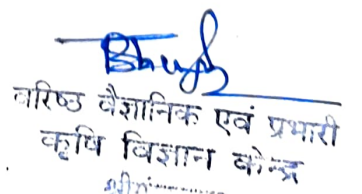 वरिष्ठ वैज्ञानिक एवं प्रभारी
कृषि विज्ञान केन्द्र